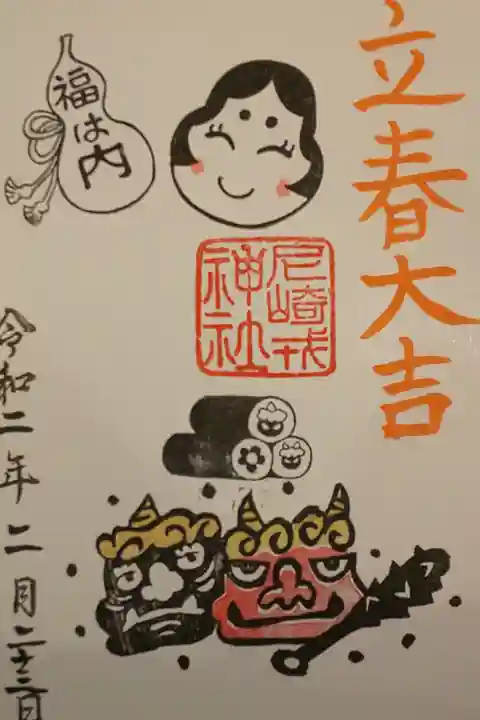 立春大吉
福は内
尼崎戎
神社
令和二年二月二十三日